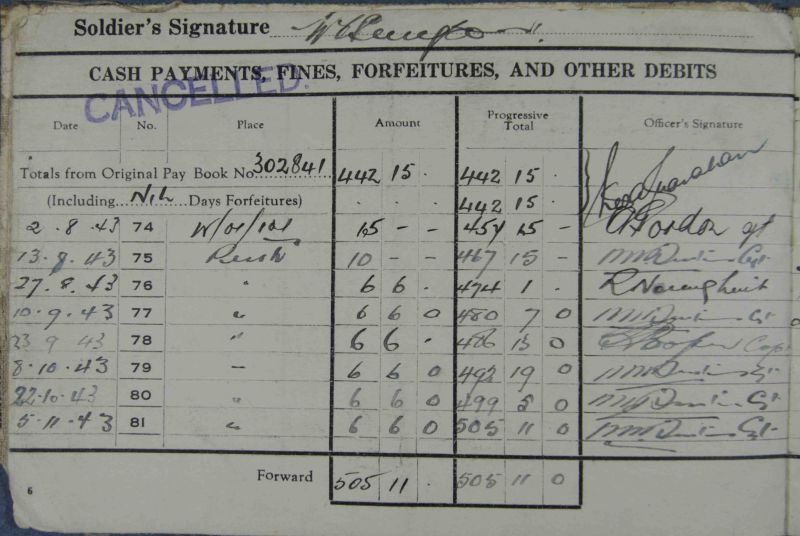 Soldier's Signature
CASH PAYMENTS, FINES, FORFEITURES, AND OTHER DEBITS
CANCELLED.
Date No. Place Amount Progressive Total Officer's Signature
Totals from Original Pay Book No. 302841 442 15 . 442 15 .
(Including Nil Days Forfeitures) 442 15 .
2.8.43 74 15 - - 15 - Gordon
13.8.43 75 Perth 10 - - 467 15 -
27.8.43 76 " 6 6 . 474 1 .
10.9.43 77 " 6 6 0 480 7 0
23 9 43 78 " 6 6 . 486 13 0 Cooper Capt
8.10.43 79 - 6 6 0 492 19 0
22.10.43 80 " 6 6 0 499 5 0
5.11.43 81 " 6 6 0 505 11 0
Forward 505 11 . 505 11 0
6